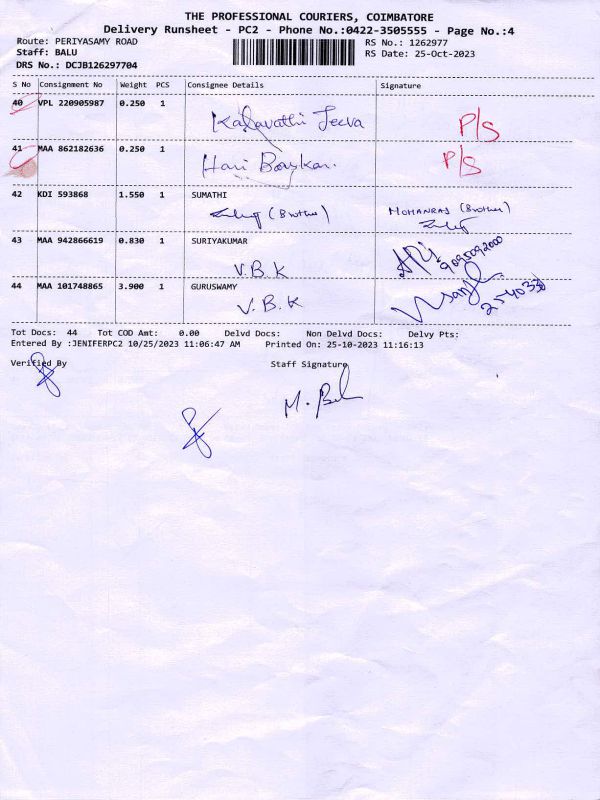 THE PROFESSIONAL COURIERS, COIMBATORE
Delivery Runsheet - PC2 - Phone No.:0422-3505555 - Page No.:4
Route: PERIYASAMY ROAD RS No.: 1262977
Staff: BALU RS Date: 25-Oct-2023
DRS No.: DCJB126297704
S No Consignment No Weight PCS Consignee Details Signature
40 VPL 220905987 0.250 1
Kalavathi Jeeva P/S
41 MAA 862182636 0.250 1
Hari P/S
42 KDI 593868 1.550 1 SUMATHI
(Brother) MOHANRAJ (Brother)
43 MAA 942866619 0.830 1 SURIYAKUMAR
V.B.K 9095092000
44 MAA 101748865 3.900 1 GURUSWAMY
V.B.K
Tot Docs: 44 Tot COD Amt: 0.00 Delvd Docs: Non Delvd Docs: Delvy Pts:
Entered By :JENIFERPC2 10/25/2023 11:06:47 AM Printed On: 25-10-2023 11:16:13
Verified By Staff Signature